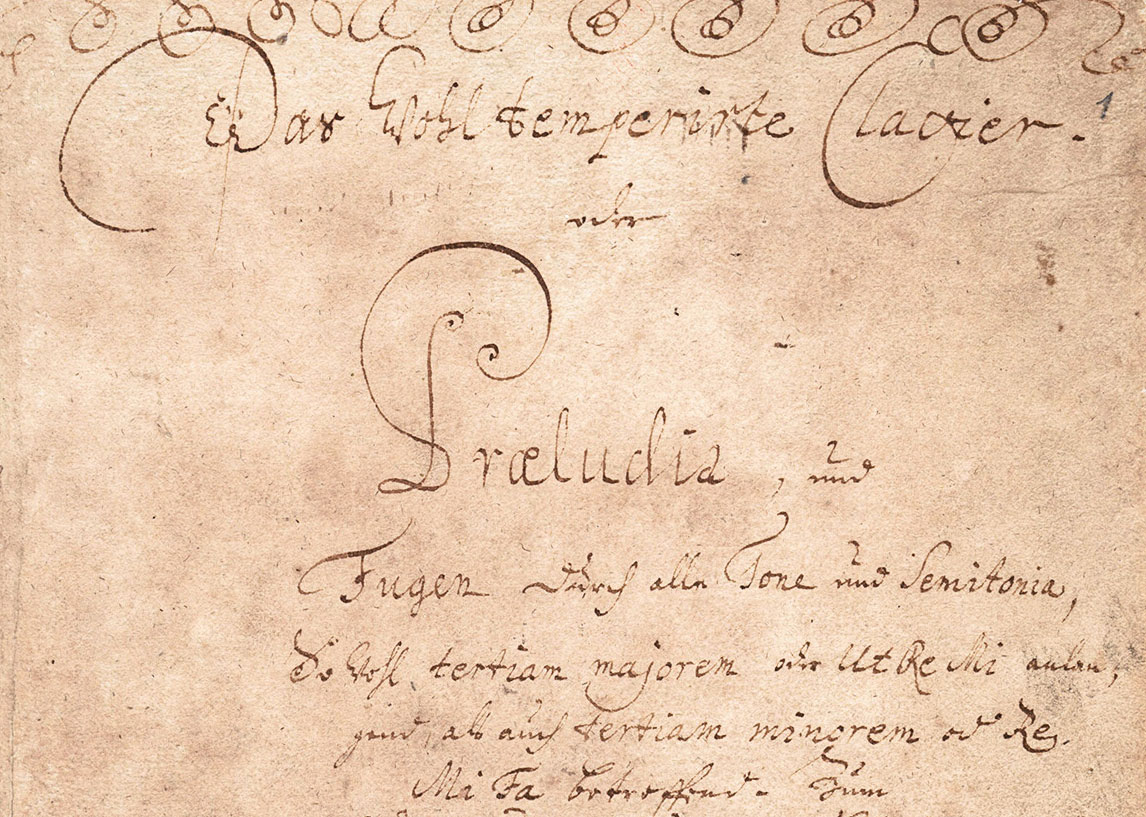 Das Wohltemperirte Clavier.
1
oder
Præludia, und
Fugen durch alle Tone und Semitonia,
So wohl tertiam majorem oder Ut Re Mi anlan,
gend, als auch tertiam minorem od Re,
Mi Fa betreffend. Zum